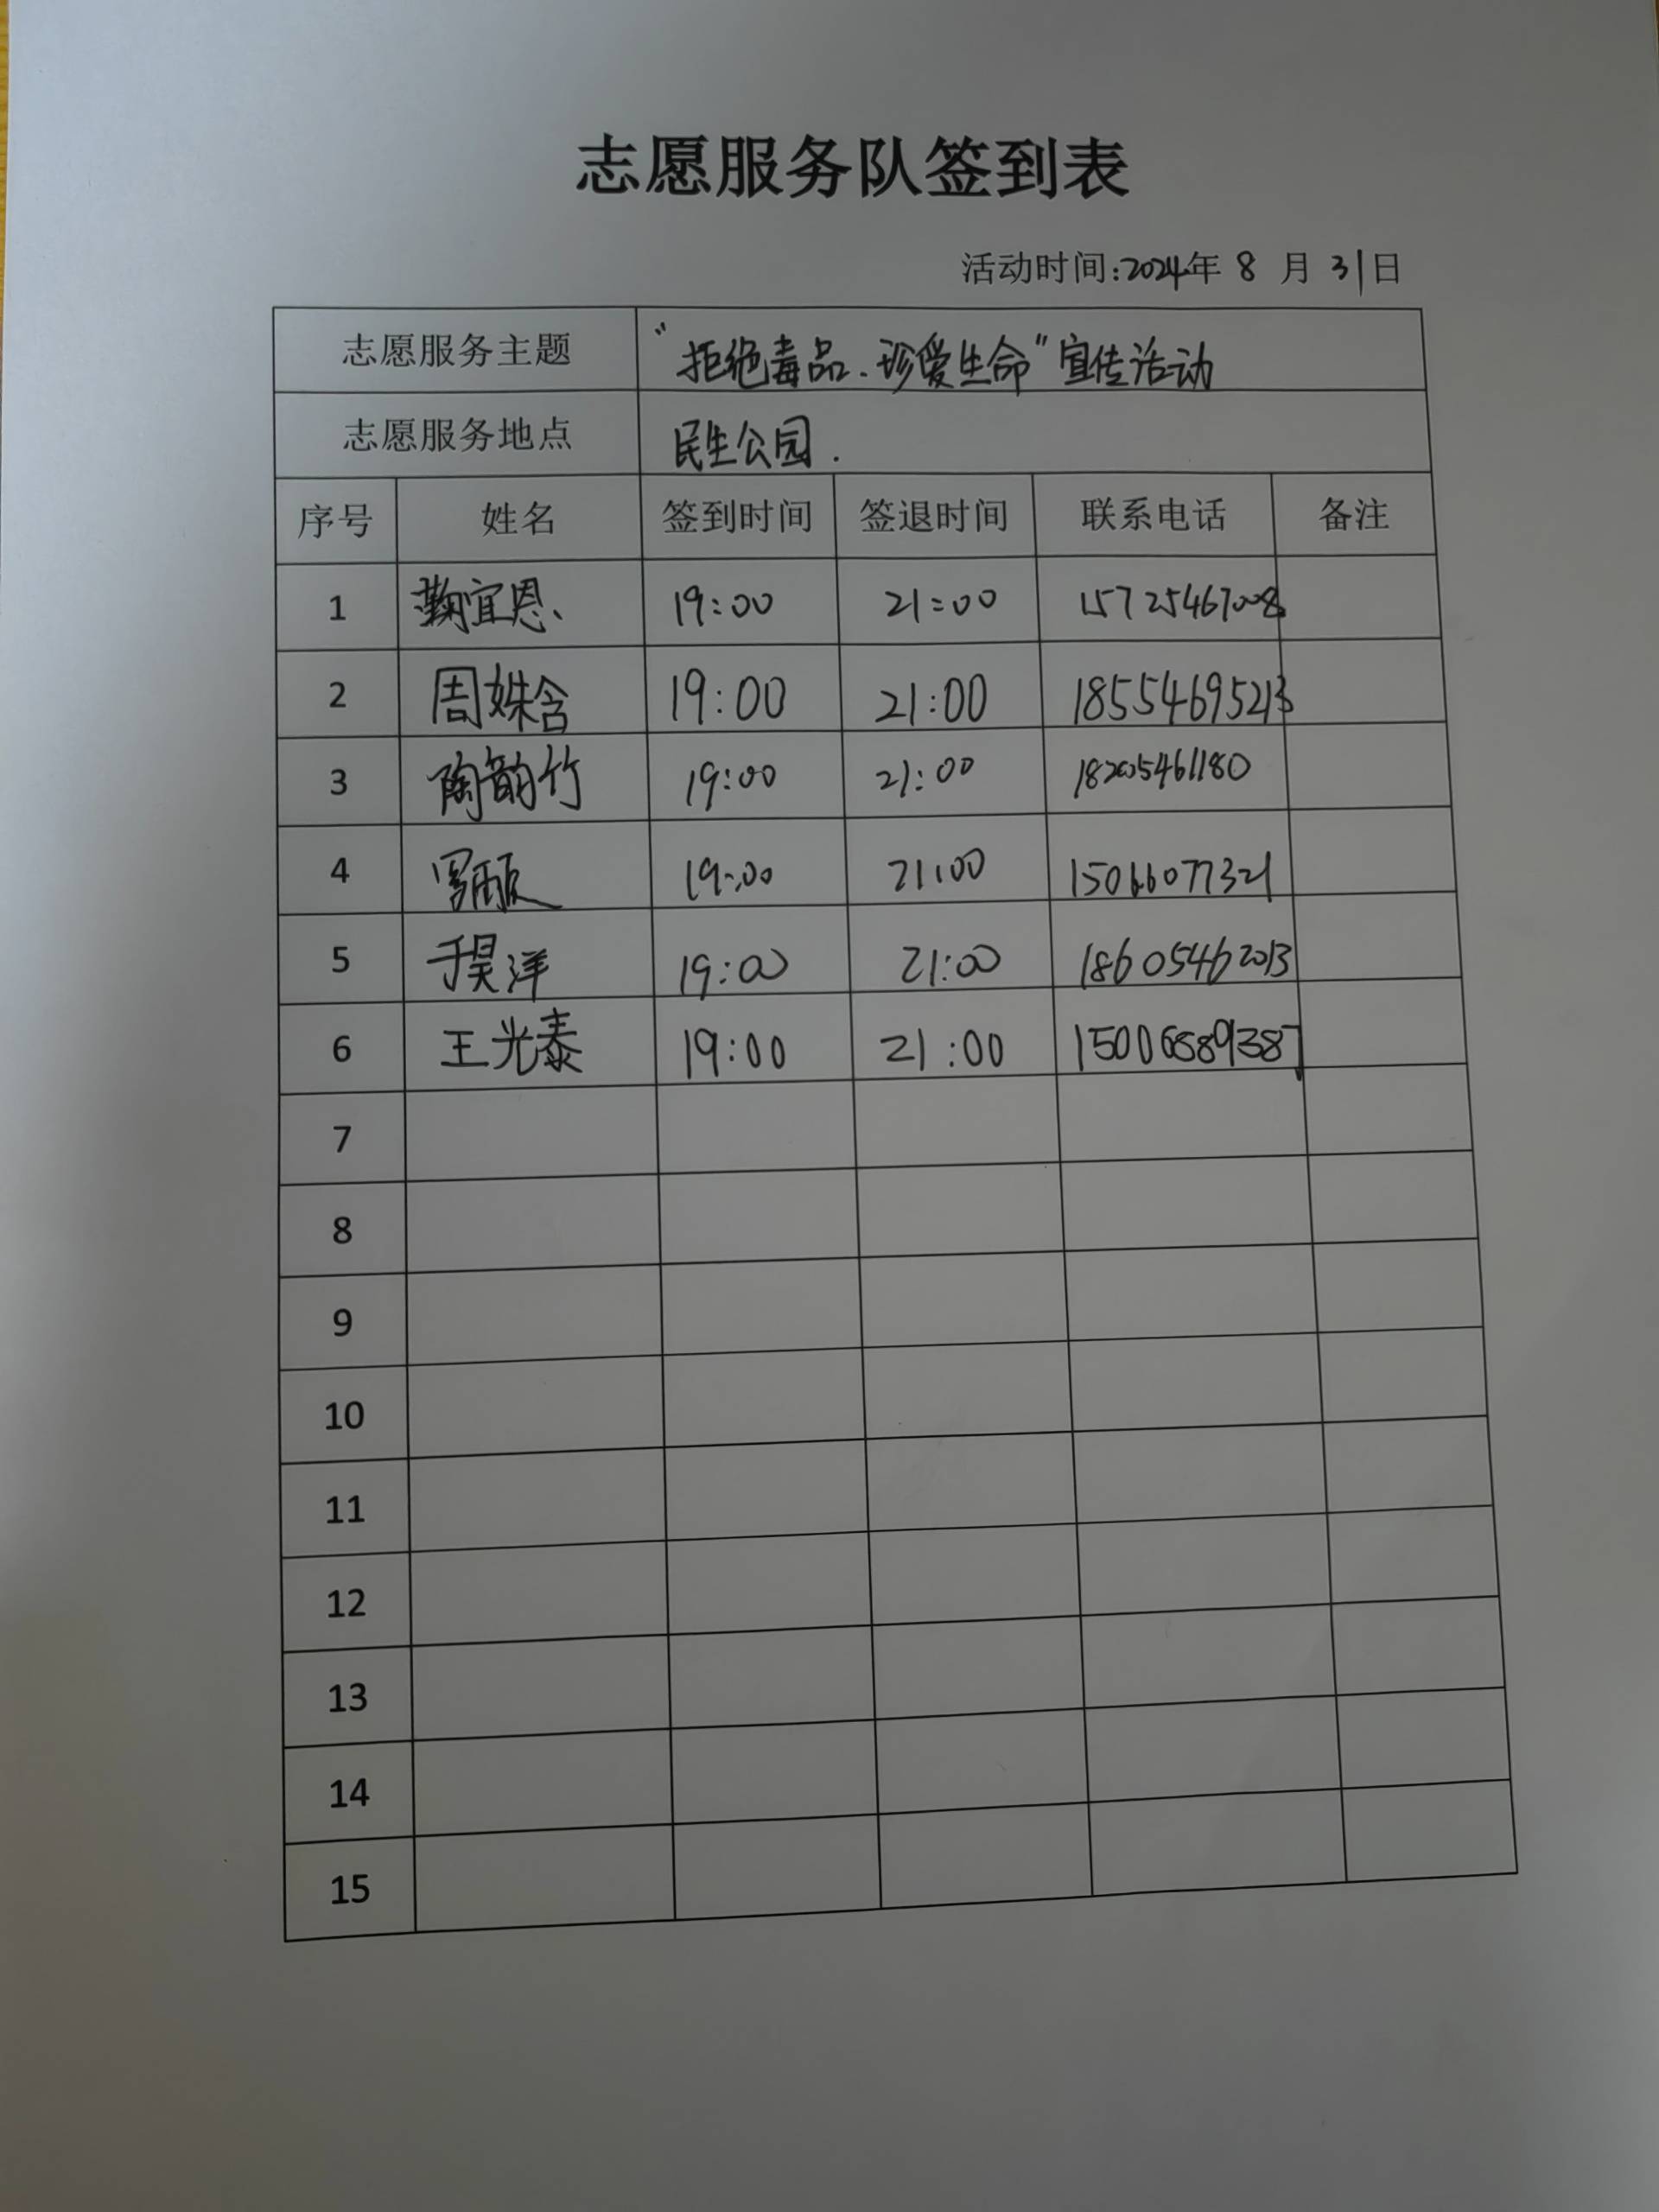 志愿服务队签到表
活动时间:2024年 8 月 31日
志愿服务主题 "拒绝毒品.珍爱生命"宣传活动
志愿服务地点 民生公园.
序号 姓名 签到时间 签退时间 联系电话 备注
1 鞠宜恩、 19:00 21:00 15725467008
2 周姝含 19:00 21:00 18554695213
3 陶韵竹 19:00 21:00 18205461180
4 19:00 21:00 15066077321
5 于昊洋 19:00 21:00 18605462013
6 王光泰 19:00 21:00 15006889387
7
8
9
10
11
12
13
14
15